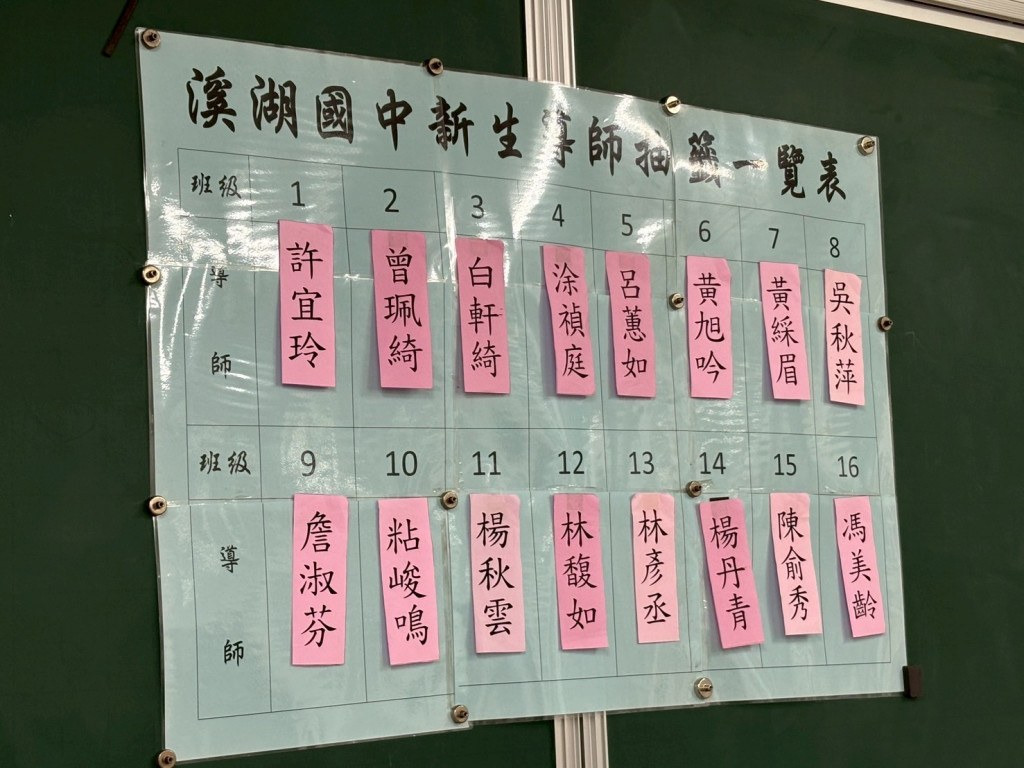 溪湖國中新生導師抽籤一覽表
班級 1 2 3 4 5 6 7 8
導師 許宜玲 曾珮綺 白軒綺 涂禎庭 呂蕙如 黃旭吟 黃綵眉 吳秋萍
班級 9 10 11 12 13 14 15 16
導師 詹淑芬 粘峻鳴 楊秋雲 林馥如 林彥丞 楊丹青 陳俞秀 馮美齡